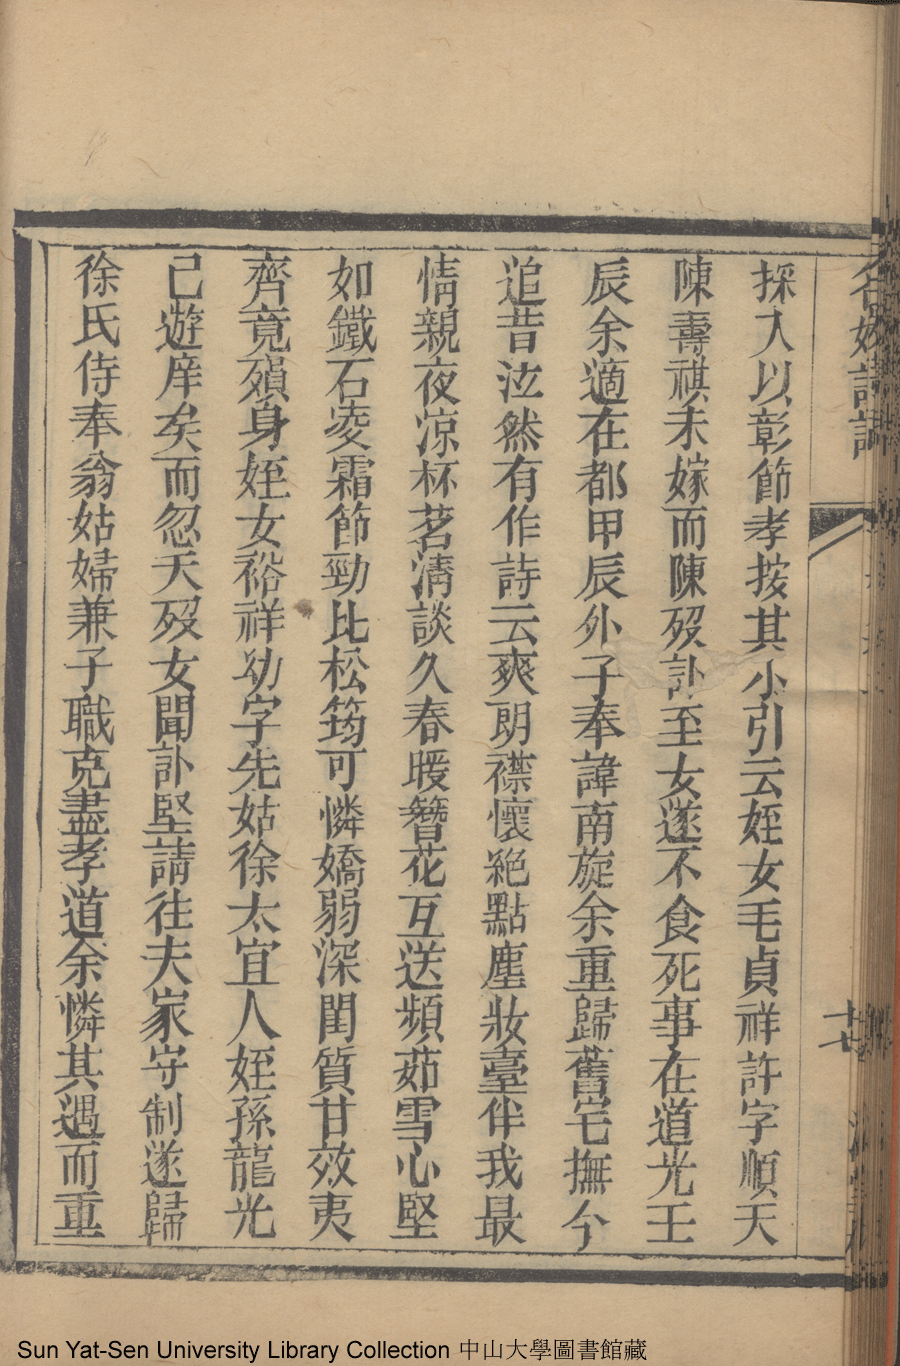 採入以彰節孝按其小引云姪女毛貞祥許字順天
陳壽祺未嫁而陳歿訃至女遂不食死事在道光壬
辰余適在都甲辰外子奉諱南旋余重歸舊宅撫今
追昔泫然有作詩云爽朗襟懷絕點塵妝臺伴我最
情親夜凉杯茗清談久春暖簪花互送頻茹雪心堅
如鐵石凌霜節勁比松筠可憐嬌弱深閨質甘效夷
齊竟殞身姪女裕祥幼字先姑徐太宜人姪孫龍光
己遊庠矣而忽夭歿女聞訃堅請往夫家守制遂歸
徐氏侍奉翁姑婦兼子職克盡孝道余憐其遇而重
十七
Sun Yat-Sen University Library Collection 中山大學圖書館藏